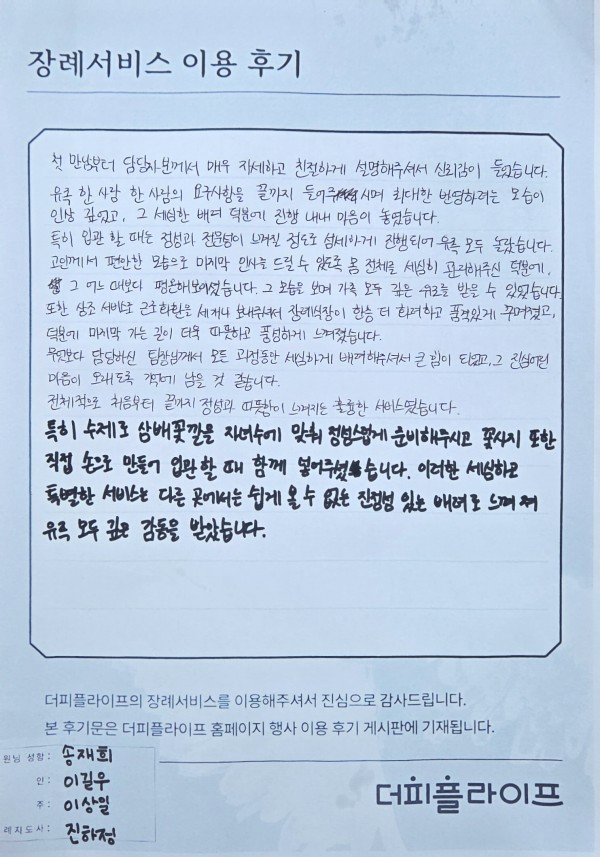 장례서비스 이용 후기
첫 만남부터 담당자분께서 매우 자세하고 친절하게 설명해주셔서 신뢰감이 들었습니다.
유족 한 사람 한 사람의 요구사항을 끝까지 들어주시며 최대한 반영하려는 모습이
인상 깊었고, 그 세심한 배려 덕분에 진행 내내 마음이 놓였습니다.
특히 입관 할 때는 정성과 전문성이 느껴질 정도로 섬세하게 진행되어 유족 모두 놀랐습니다.
고인께서 편안한 모습으로 마지막 인사를 드릴 수 있도록 몸 전체를 세심히 관리해주신 덕분에,
그 어느 때보다 평온해보이셨습니다. 그 모습을 보며 가족 모두 깊은 위로를 받을 수 있었습니다.
또한 상조 서비스로 근조화환을 세개나 보내주셔서 장례식장이 한층 더 화려하고 품격있게 꾸며졌고,
덕분에 마지막 가는 길이 더욱 따뜻하고 풍성하게 느껴졌습니다.
무엇보다 담당하신 팀장님께서 모든 과정동안 세심하게 배려해주셔서 큰 힘이 되었고, 그 진심어린
마음이 오래도록 기억에 남을 것 같습니다.
전체적으로 처음부터 끝까지 정성과 따뜻함이 느껴지는 훌륭한 서비스였습니다.
특히 수제로 삼베꽃길을 자녀수에 맞춰 정성스럽게 준비해주시고 꽃사지 또한
직접 손으로 만들어 입관할 때 함께 넣어주셨습니다. 이러한 세심하고
특별한 서비스는 다른 곳에서는 쉽게 올 수 없는 진정성 있는 배려로 느껴져
유족 모두 깊은 감동을 받았습니다.
더피플라이프의 장례서비스를 이용해주셔서 진심으로 감사드립니다.
본 후기문은 더피플라이프 홈페이지 행사 이용 후기 게시판에 기재됩니다.
원님 성함 : 송재희
인 : 이길우
주 : 이상일
례지도사 : 진하정
더피플라이프